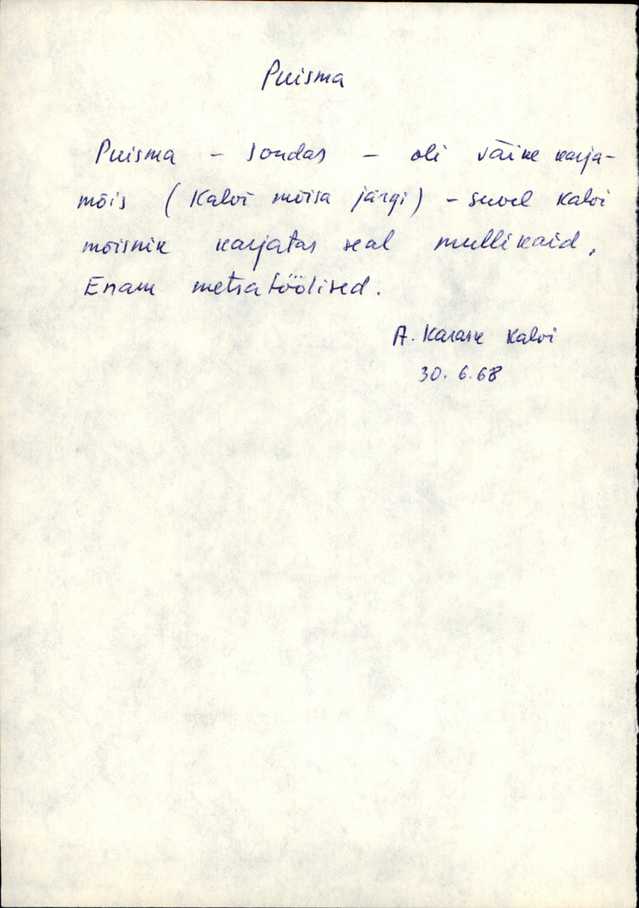 Puisma
Puisma - Sondas - oli väike karja-
mõis (Kalvi mõisa järgi) - suvel Kalvi
mõisnik karjatas seal mullikaid,
Enam metsatöölised.
A. Karask Kalvi
30. 6.68